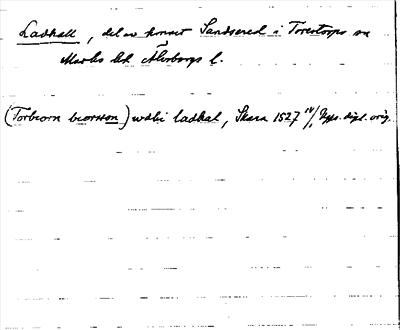 Ladkall, del av hemmet Sandsered i Torestorps sn
Marks hd Älvsborgs l.
(Torbiorn biorsson) wdhi ladkal, Skara 1527 18/1 Upps. dipl. orig.